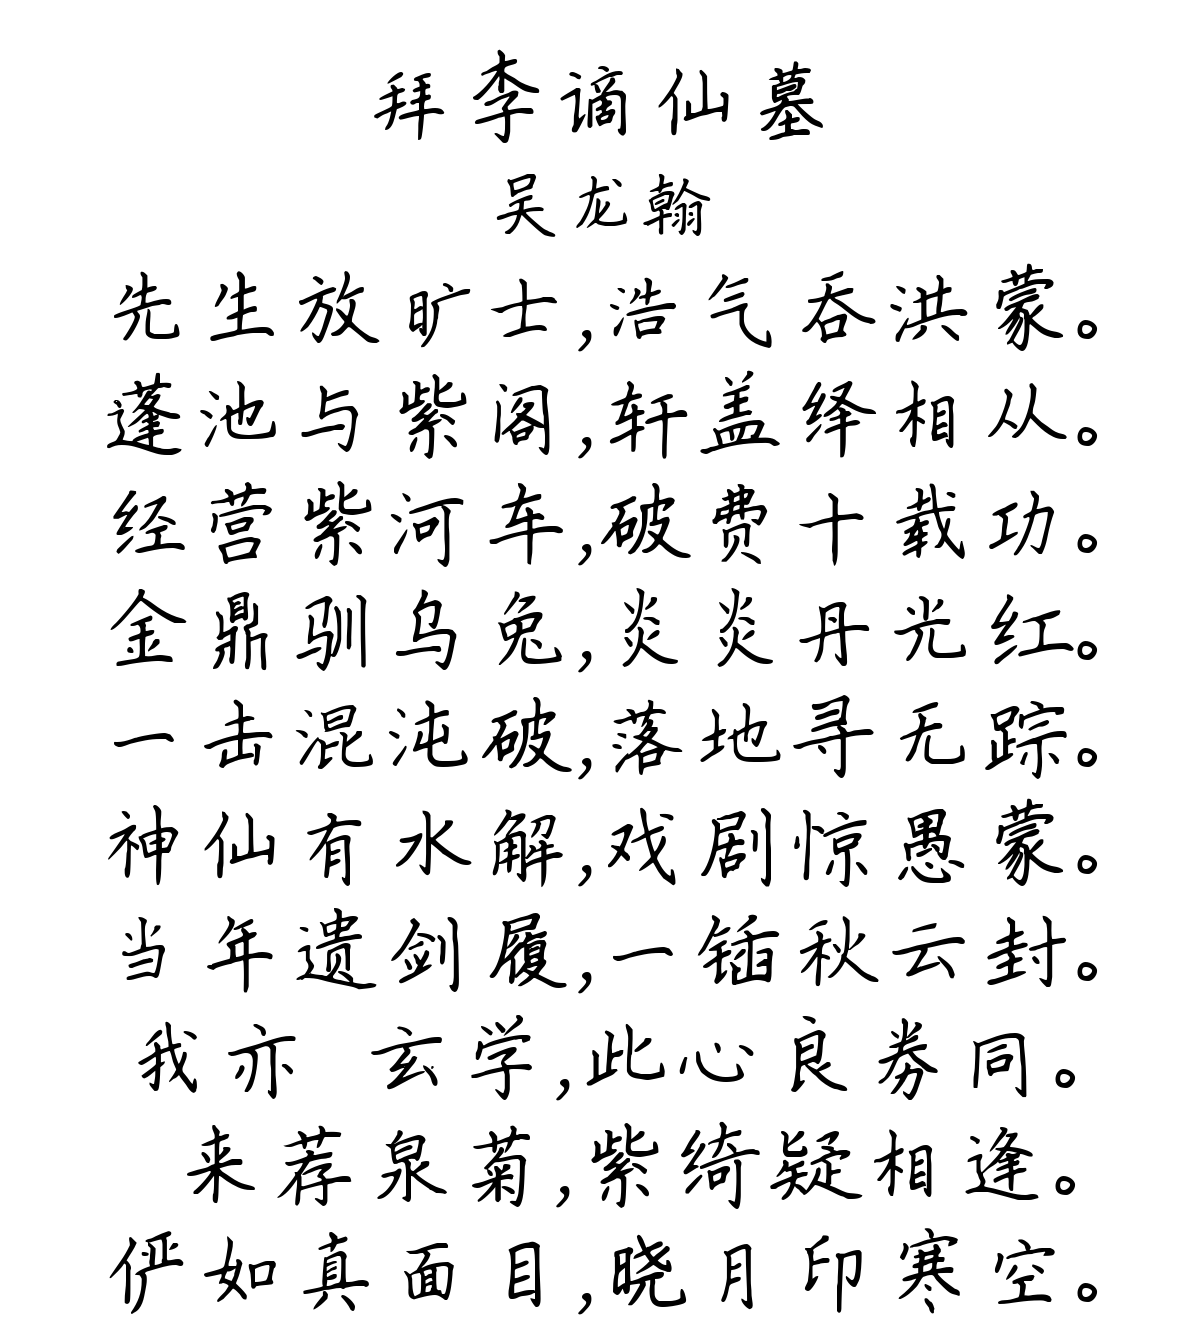 拜李谪仙墓
吴龙翰
先生放旷士,浩气吞洪蒙。
蓬池与紫阁,轩盖绎相从。
经营紫河车,破费十载功。
金鼎驯乌兔,炎炎丹光红。
一击混沌破,落地寻无踪。
神仙有水解,戏剧惊愚蒙。
当年遗剑履,一锸秋云封。
我亦 玄学,此心良劵同。
来荐泉菊,紫绮疑相逢。
俨如真面目,晓月印寒空。